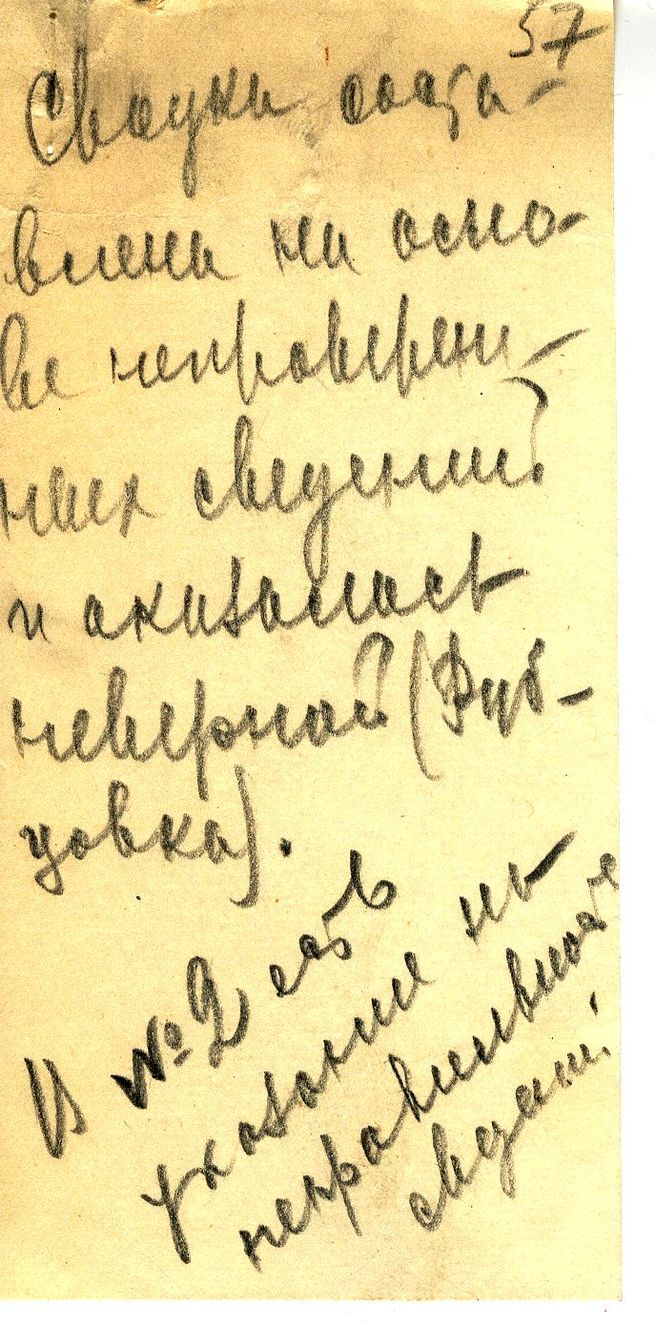 57
Сводка соста-
влена на осно-
ве непроверен-
ных сведений
и оказалась
неверной (Руб-
цовка).
В №2 есть
указание на
неправильность
сведений